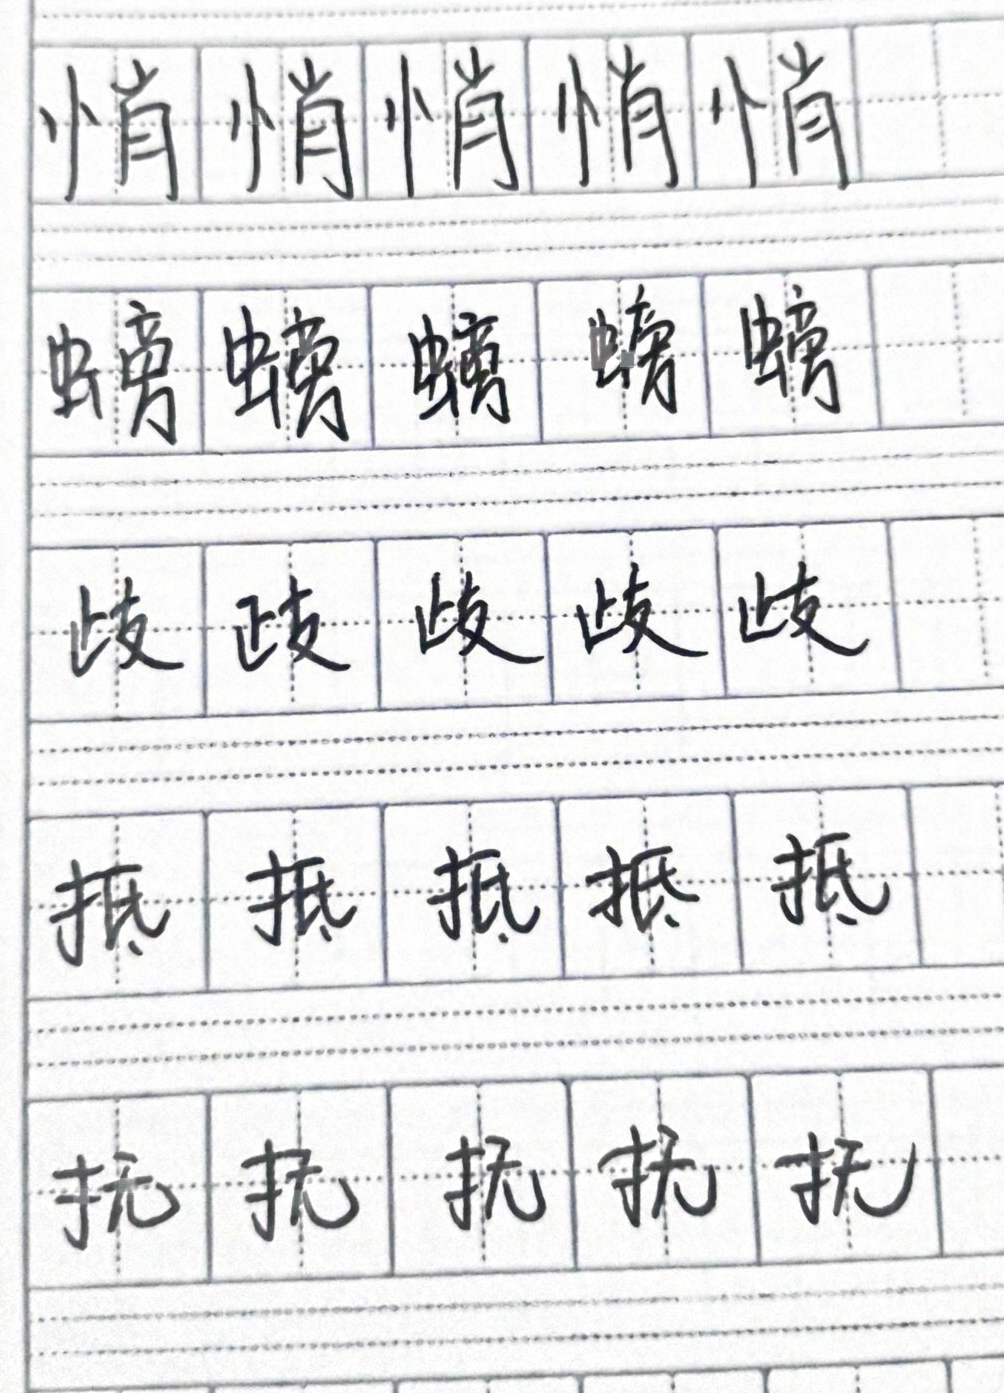 悄悄悄悄悄
螃螃螃螃螃
歧歧歧歧歧
抵抵抵抵抵
抚抚抚抚抚